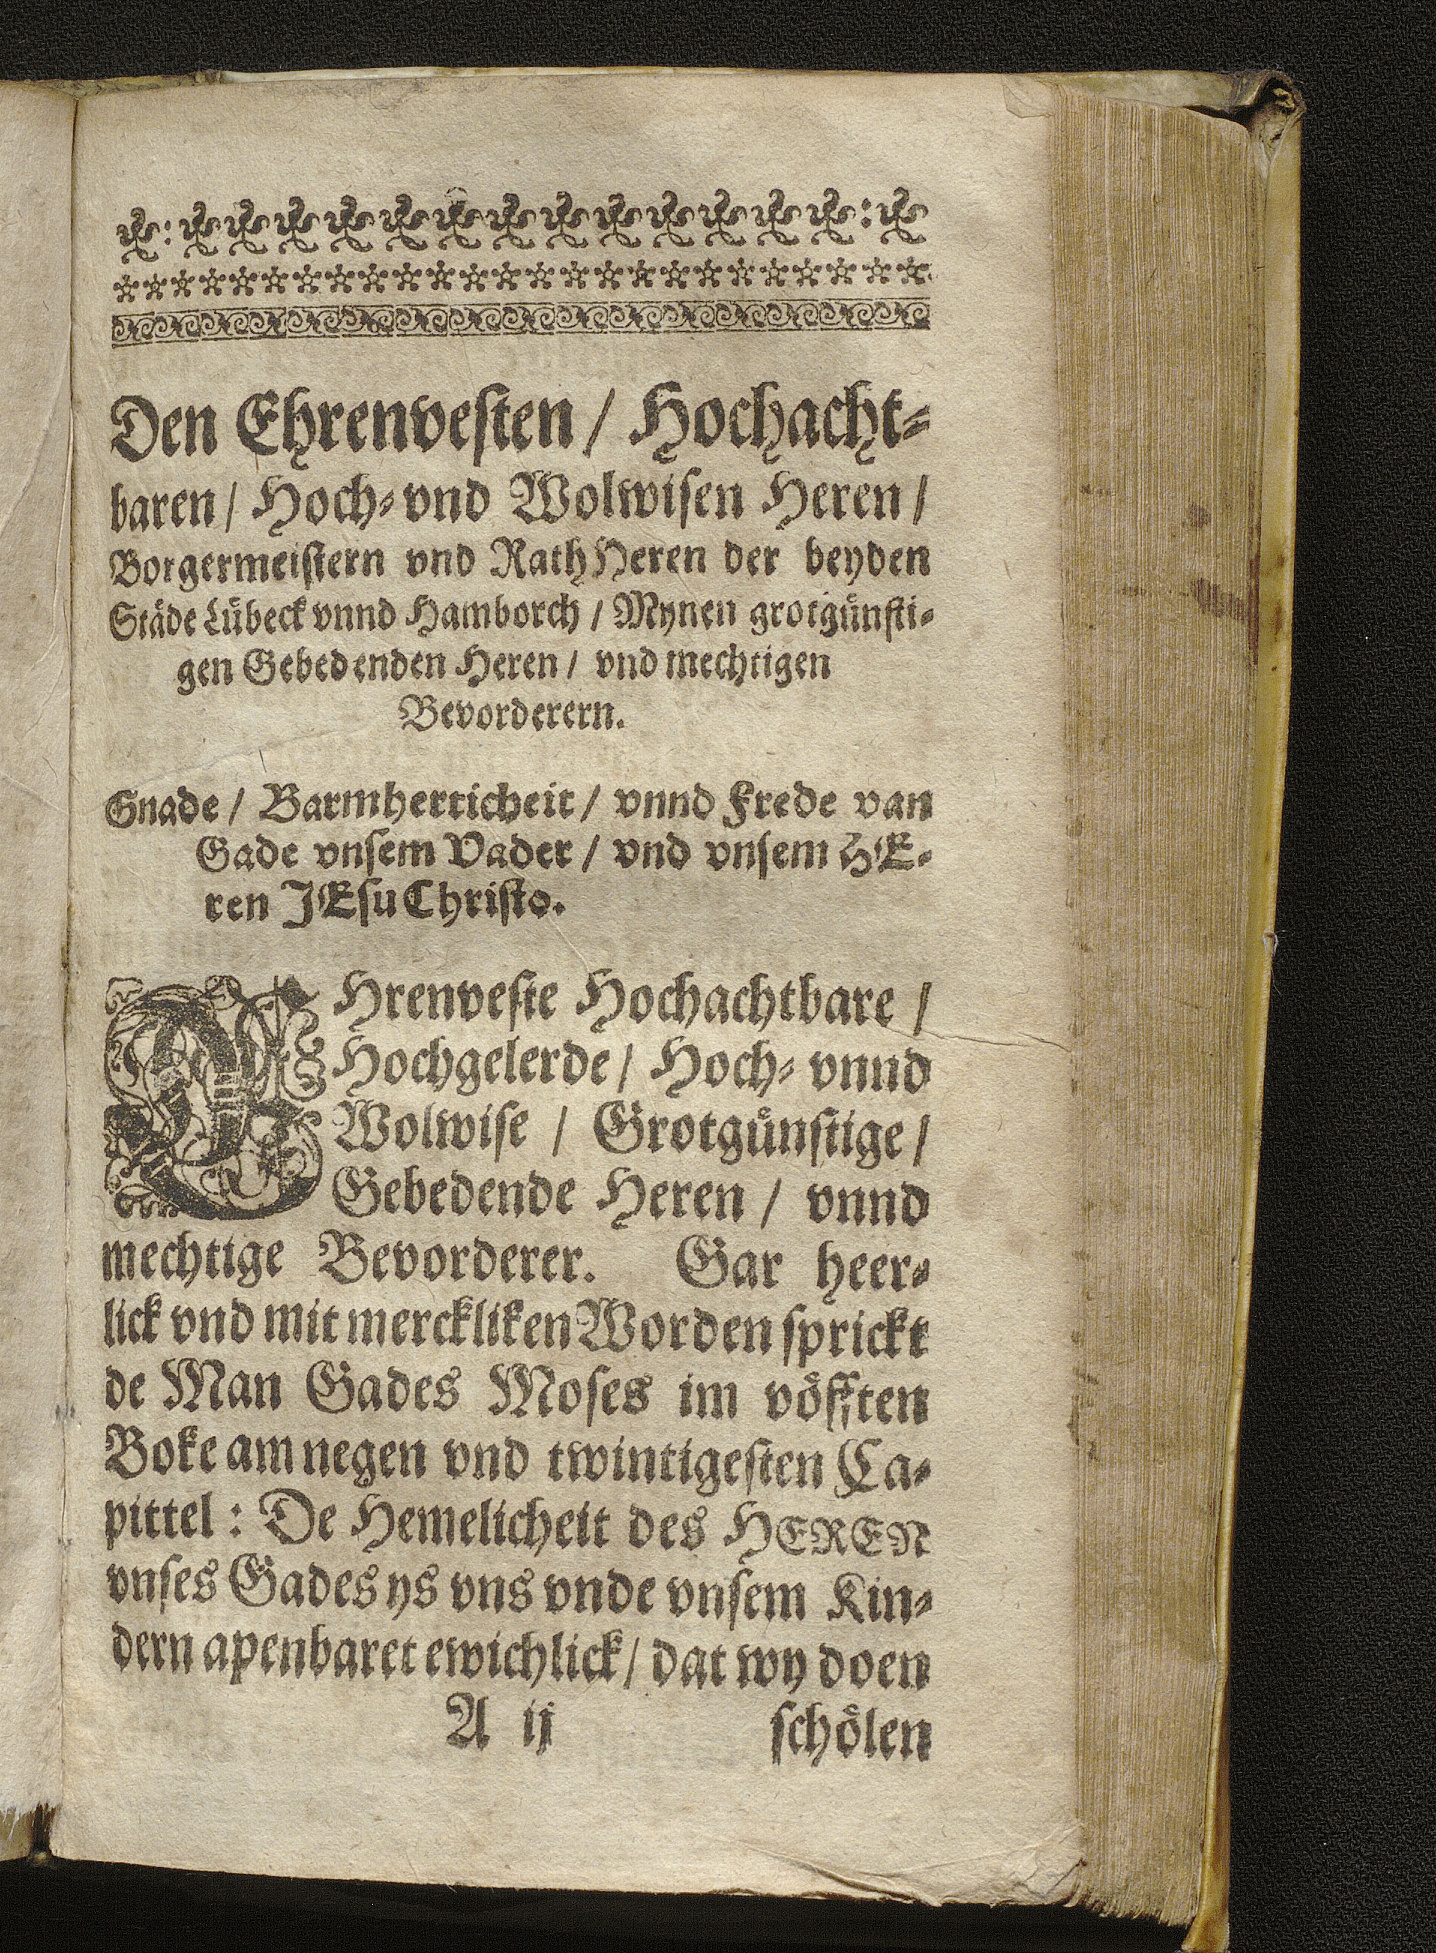 Den Ehrenvesten / Hochacht-
baren / Hoch- vnd Wolwisen Heren /
Borgermeistern vnd RathHeren der beyden
Städe Lübeck vnnd Hamborch / Mynen grotgünsti-
gen Gebedenden Heren / vnd mechtigen
Bevorderern.
Gnade / Barmherticheit / vnnd Frede van
Gade vnsem Vader / vnd vnsem HE-
ren JEsu Christo.
EHrenveste Hochachtbare /
Hochgelerde / Hoch- vnnd
Wolwise / Grotgünstige /
Gebedende Heren / vnnd
mechtige Bevorderer. Gar heer-
lick vnd mit merckliken Worden sprickt
de Man Gades Moses im vöfften
Boke am negen vnd twintigesten Ca-
pittel : De Hemelicheit des HEREN
vnses Gades ys vns vnde vnsem Kin-
dern apenbaret ewichlick / dat wy doen
A ij schölen